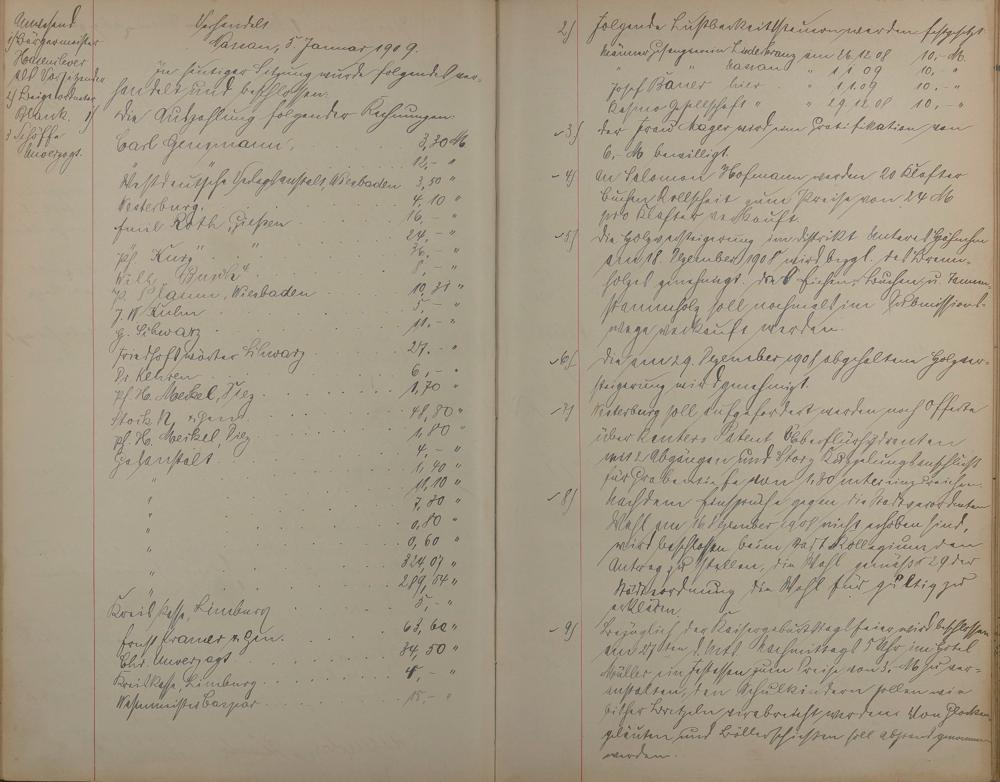 Anwesend
1) Bürgermeister
Hasenclever
als Vorsitzender
2) Beigeordneter
Plank.
3 Schöffe
Unverzagt.
Verhandelt
Nassau, 5 Januar 1909.
In heutiger Sitzung wurde folgendes ver-
handelt und beschlossen.
1) Die Auszahlung folgender Rechnungen:
Carl Gengmann, 3,30 M
" 12,- "
Westdeutsche Verlagsanstalt, Wiesbaden 3,50 "
Westerburg. 4,10 "
Emil Roth, Gießen 16,- "
" " 24,- "
Ph. Kurz 36,- "
Wilh. Busch 8,- "
P. Plaum, Wiesbaden 10,31 "
J. W. Kuhn 5,- "
G. Schwarz 11,- "
Friedhofswärter Schwarz 27,- "
Dr Kehren 6,- "
Ph. H. Meckel, Diez 1,70 "
Stork N. u. Gen. 48,80 "
Ph. H. Meckel Diez 1,80 "
Gasanstalt 4,- "
" 1,40 "
" 11,10 "
" 7,30 "
" 0,80 "
" 0,60 "
" 324,07 "
" 289,84 "
Kreiskasse, Limburg 5,- "
Ernst Kramer u. Gen. 63,60 "
Chr. Unverzagt 34,50 "
Kreiskasse, Limburg 4,- "
Wiesenmeister Caspar 15,- "
2) Folgende Lustbarkeitssteuern werden festgesetzt
Männergesangverein Liederkranz am 26.12.08 10,- M.
" " Nassau " 1.1.09 10,- "
Josef Bauer hier " 1.1.09 10,- "
Casino Gesellschaft " " 29.12.08 10,- "
3) Der Frau Mager wird eine Gratifikation von
6,- M bewilligt.
4) An Salomon Hofmann werden 20 Klafter
buchen Rollscheit zum Preise von 24 M
pro Klafter verkauft.
5) Die Holzversteigerung im Distrikt Unteres
am 18. Dezember 1908 wird bezgl. des Brenn-
holzes genehmigt. Das Eichen, Buchen u. Tannen-
stammholz soll nochmals im Submissions-
wege verkauft werden.
6) Die am 29. Dezember 1908 abgehaltene Holzver-
steigerung wird genehmigt.
7) Westerburg soll aufgefordert werden noch Offerte
über Patent Oberflurhydranten
mit 2 Abgängen und Storz Kuppelungsanschlüsse
für Grabentiefe von 1,30 unter einzureichen.
8) Nachdem Einsprüche gegen die Stadtverordneten
Wahl am Dezember 1908 nicht erhoben sind,
wird beschlossen beim Stadt Kollegium den
Antrag zu stellen, die Wahl gemäß § 29 der
Städteordnung die Wahl für gültig zu
erklären.
9) Bezüglich der Kaisergeburtstagsfeier wird beschlossen
am 27ten d. Mts. Nachmittags 5 Uhr im Hotel
Müller ein Festessen zum Preise von M zu ver-
anstalten, den Schulkindern sollen wie
bisher Bretzeln verabreicht werden. Von Glocken-
geläuten und Böllerschießen soll Abstand genommen
werden.